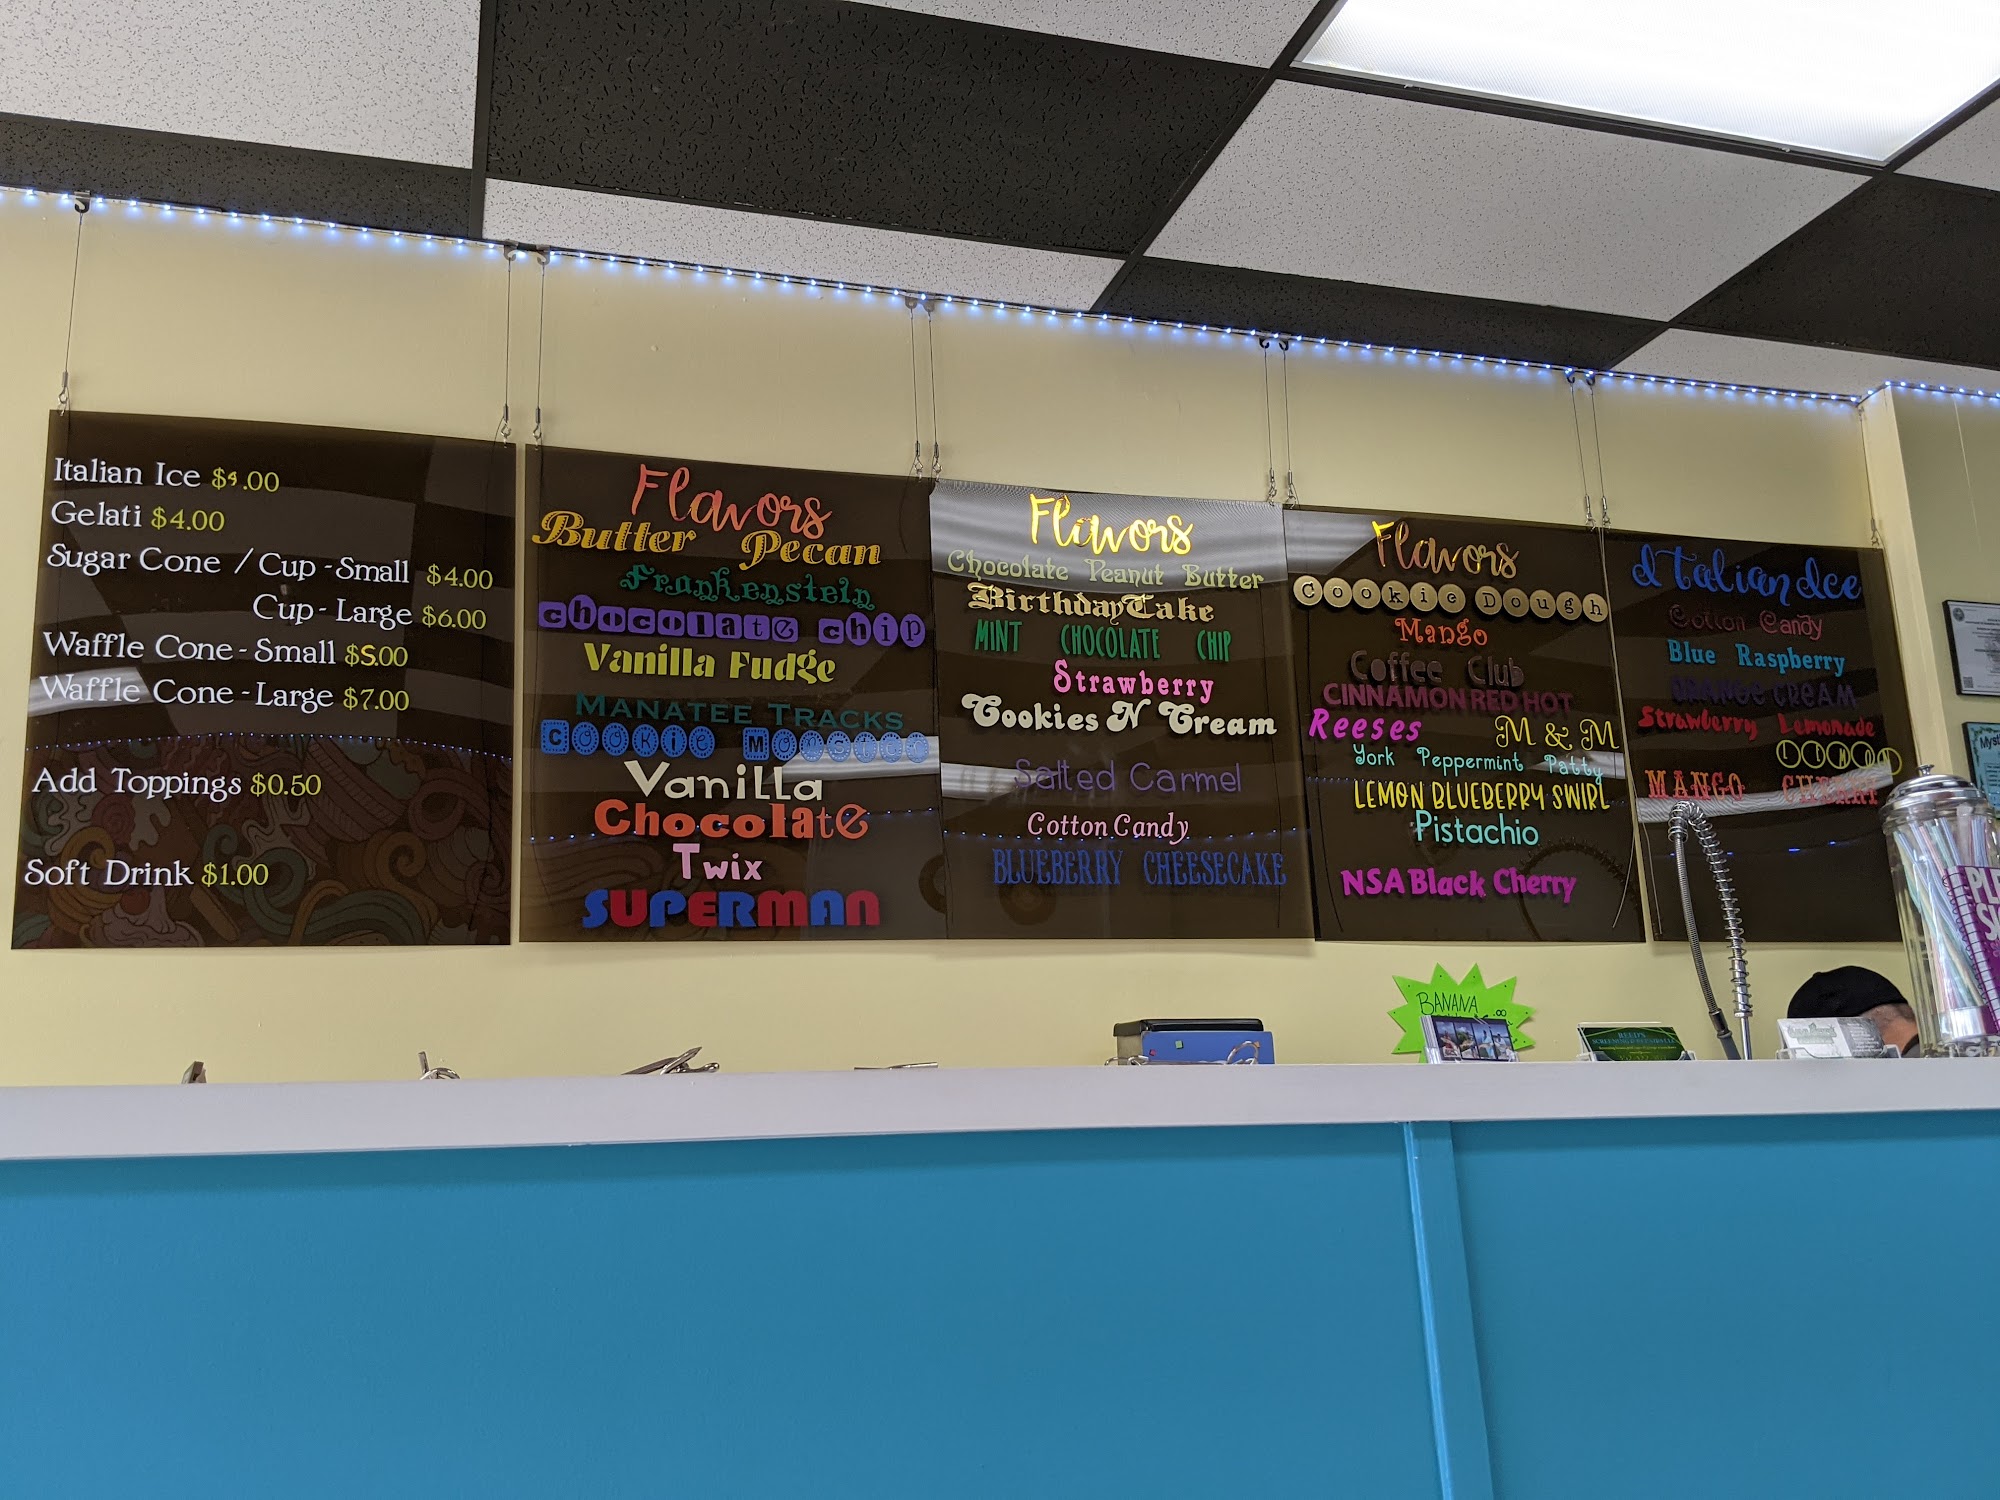 Italian Ice $4.00
Gelati $4.00
Sugar Cone / Cup - Small $4.00
Cup - Large $6.00
Waffle Cone - Small $5.00
Waffle Cone - Large $7.00
Add Toppings $0.50
Soft Drink $1.00
Flavors
Butter Pecan
Frankenstein
chocolate chip
Vanilla Fudge
MANATEE TRACKS
COOKIE MONSTER
Vanilla
Chocolate
Twix
SUPERMAN
Flavors
Chocolate Peanut Butter
Birthday Cake
MINT CHOCOLATE CHIP
Strawberry
Cookies N Cream
Salted Carmel
Cotton Candy
BLUEBERRY CHEESECAKE
Flavors
Cookie Dough
Mango
Coffee Club
CINNAMON RED HOT
Reeses M & M
York Peppermint Patty
LEMON BLUEBERRY SWIRL
Pistachio
NSA Black Cherry
Italian Ice
Cotton Candy
Blue Raspberry
ORANGE CREAM
Strawberry Lemonade
LEMON
MANGO CHERRY
BANANA
.00
REED'S